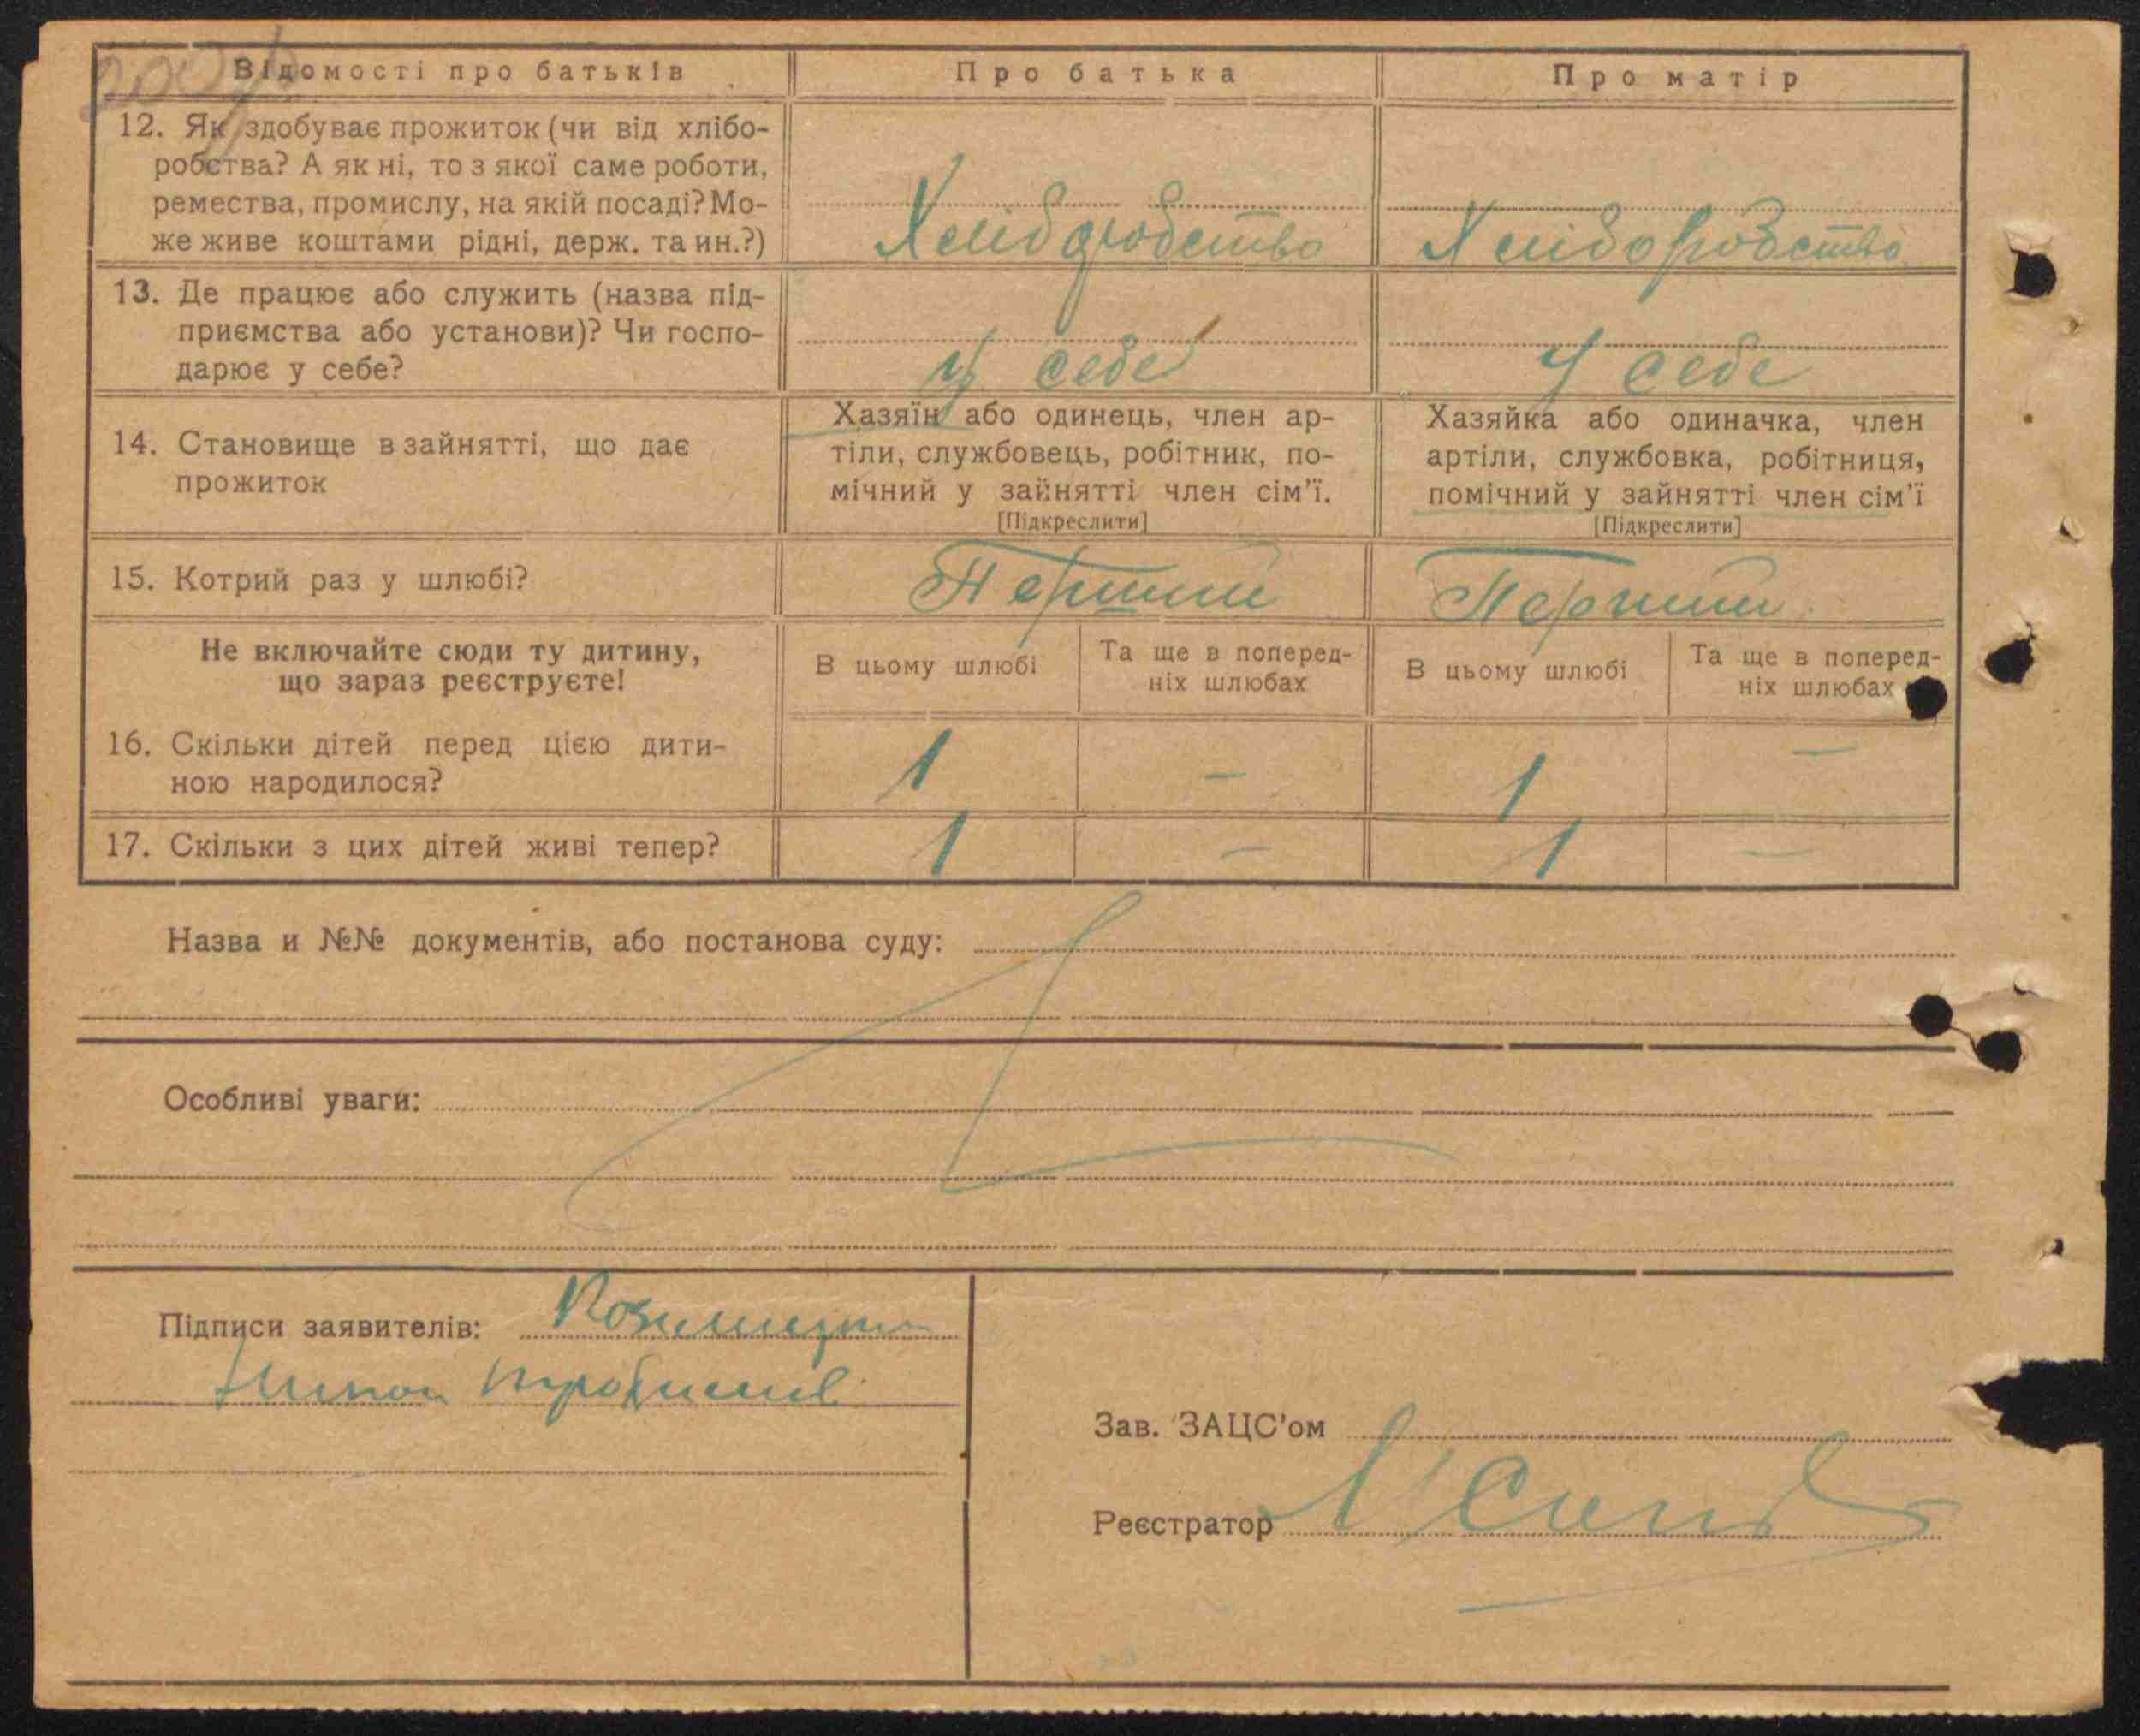 Відомості про батьків
Про батька
Про матір
12. Як здобуває прожиток (чи від хлібо-
робства? А як ні, то з якої саме роботи,
ремества, промислу, на якій посаді? Мо-
же живе коштами рідні, держ. та ин.?)
Хліборобство
Хліборобство
13. Де працює або служить (назва під-
приємства або установи)? Чи госпо-
дарює у себе?
у себе
у себе
14. Становище в зайнятті, що дає
прожиток
Хазяїн або одинець, член ар-
тіли, службовець, робітник, по-
мічний у зайнятті член сім'ї.
[Підкреслити]
Хазяйка або одиначка, член
артіли, службовка, робітниця,
помічний у зайнятті член сім'ї
[Підкреслити]
15. Котрий раз у шлюбі?
Перший
Перший
Не включайте сюди ту дитину,
що зараз реєструєте!
В цьому шлюбі
Та ще в поперед-
ніх шлюбах
В цьому шлюбі
Та ще в поперед-
ніх шлюбах
16. Скільки дітей перед цією дити-
ною народилося?
1
–
1
–
17. Скільки з цих дітей живі тепер?
1
–
1
–
Назва и №№ документів, або постанова суду:
Особливі уваги:
Підписи заявителів:
Зав. ЗАЦС'ом
Реєстратор